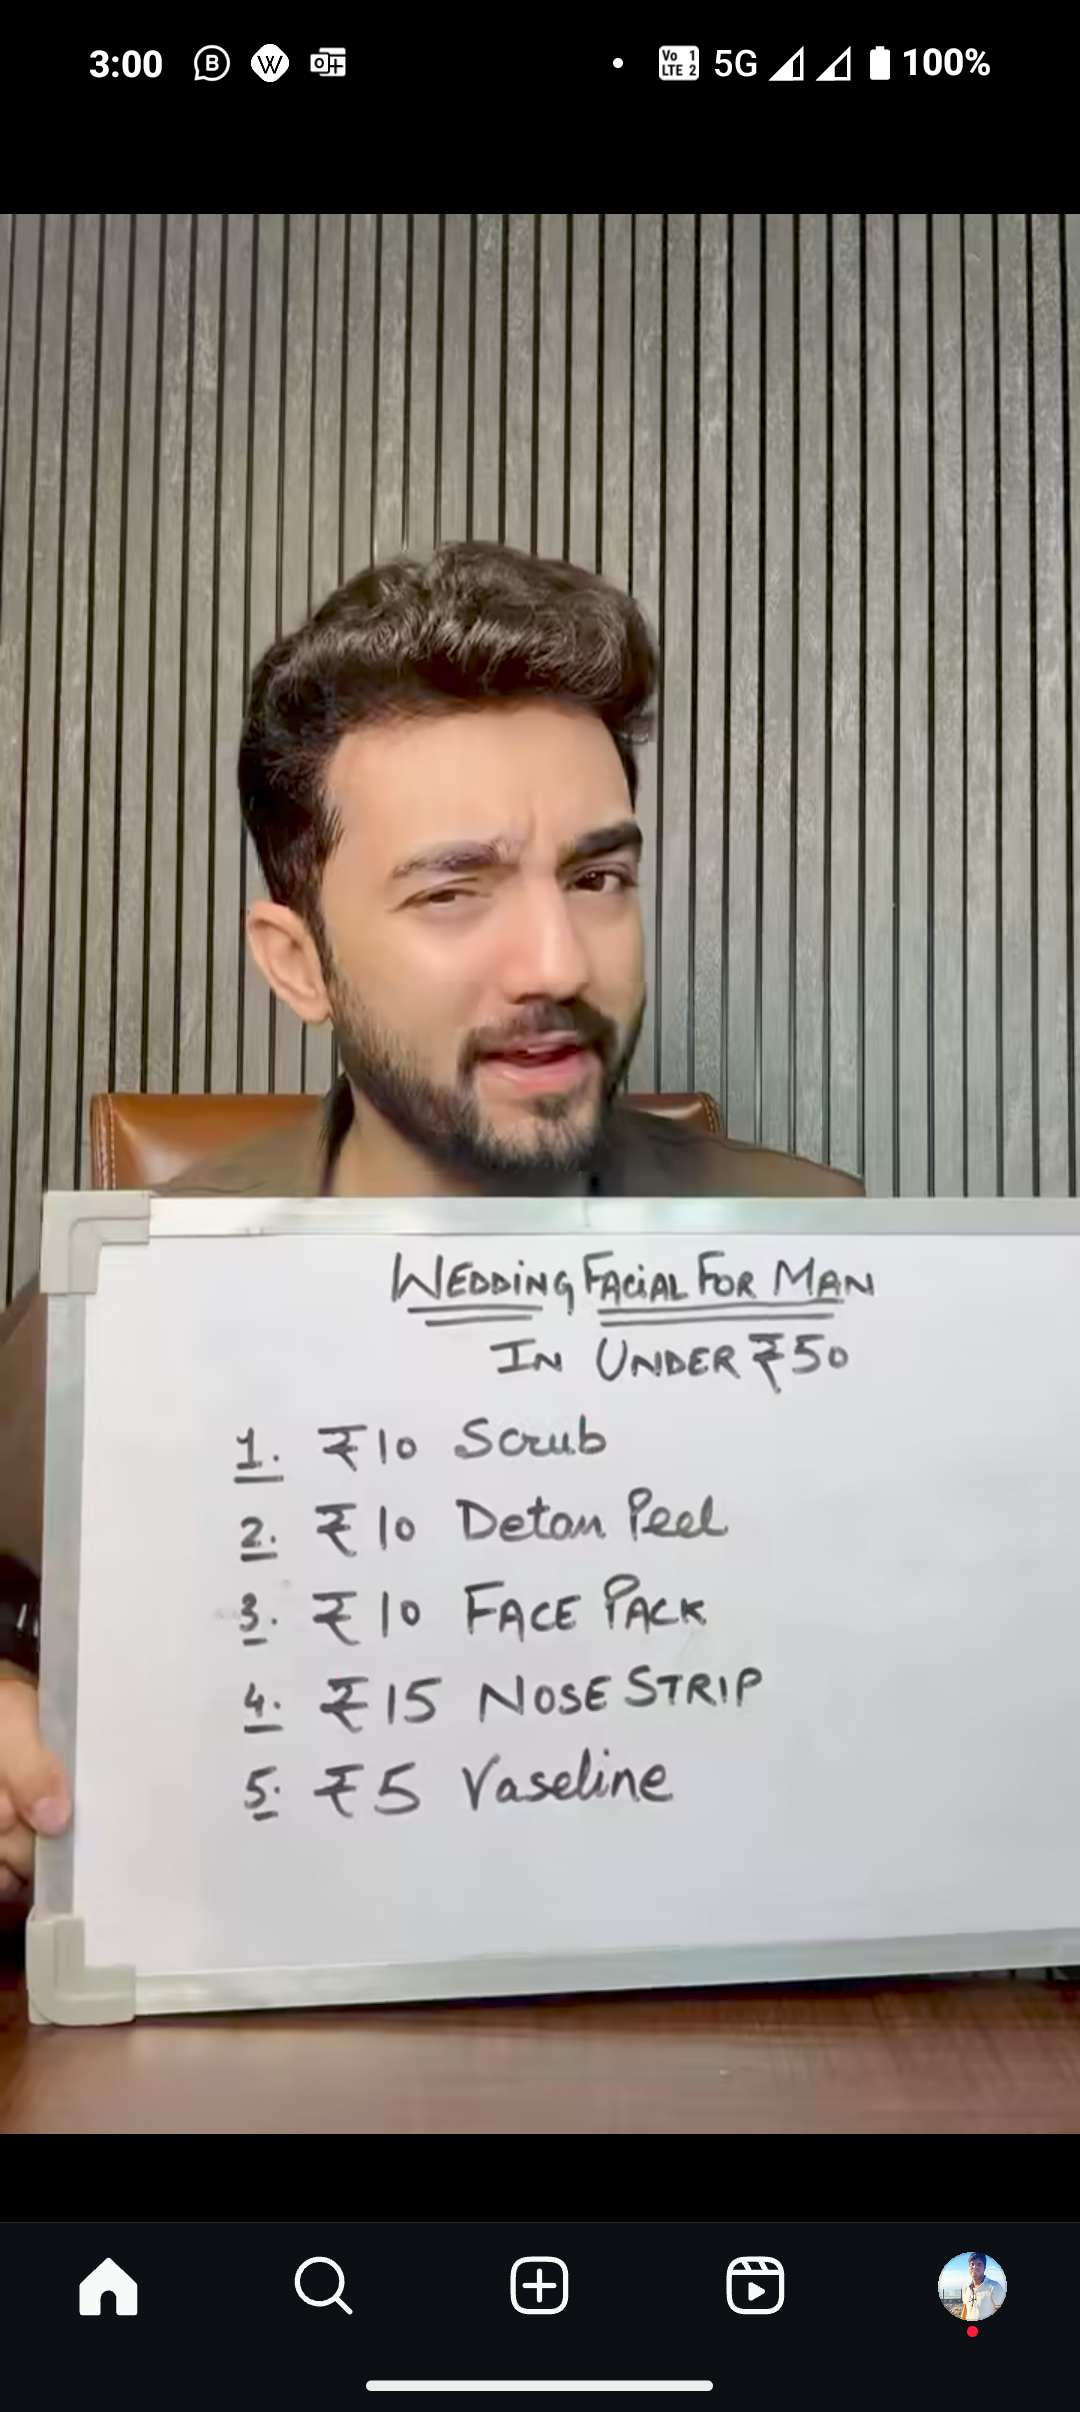 3:00
Vo 1
LTE 2
5G
100%
WEDDING FACIAL FOR MAN
IN UNDER ₹50
1. ₹10 Scrub
2. ₹10 Detan Peel
3. ₹10 FACE PACK
4. ₹15 NOSE STRIP
5. ₹5 Vaseline